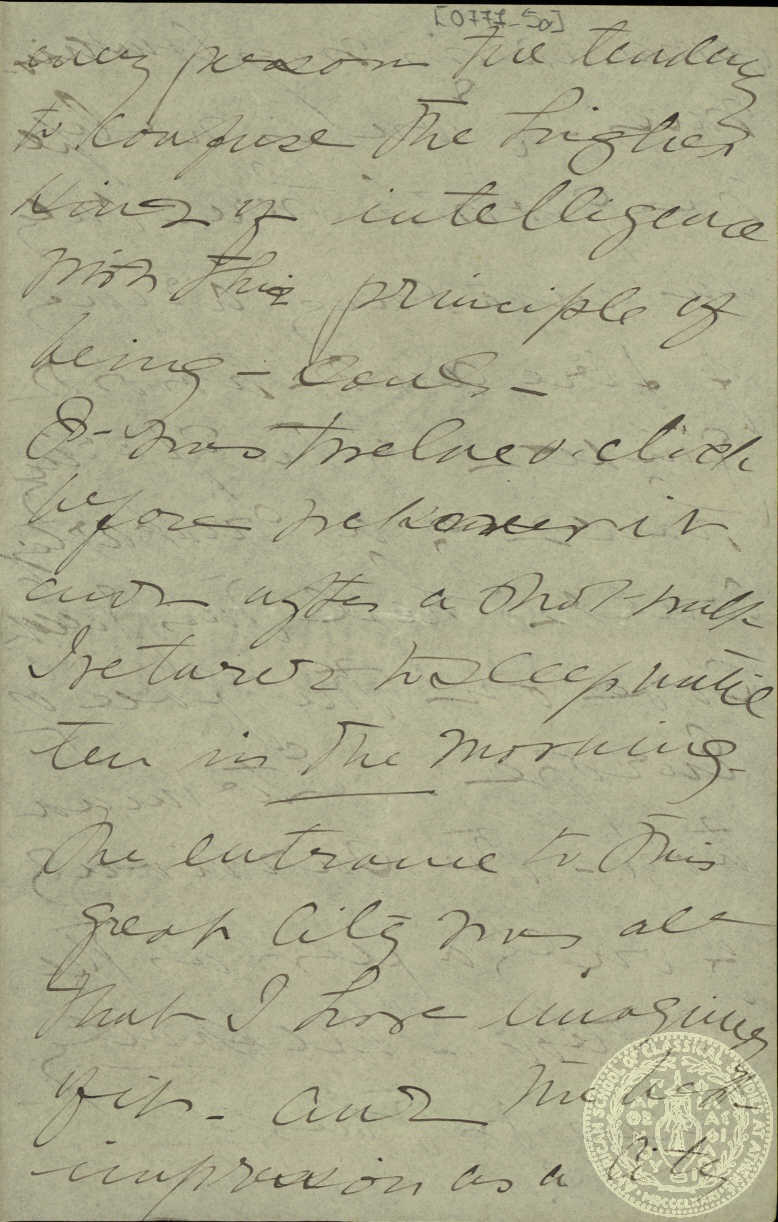 [0771-50]
every person the tendency
to confuse the higher
kind of intelligence
with this principle of
being - soul -
It was twelve o.clock
before we knew it
and after a short walk
I retured to sleep until
ten in the morning -
The entrance to this
great City was all
that I have imagined
of it - and the
impression as a City